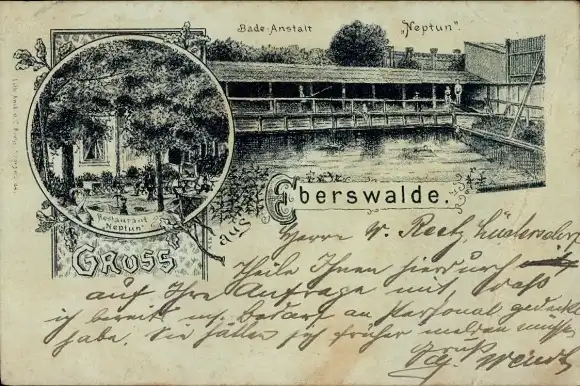 Bade-Anstalt „Neptun".
Restaurant
"Neptun"
Gruss
aus
Eberswalde.
Herrn W. Reetz, Lüdersdorf
Theile Ihnen hierdurch
auf Ihre Anfrage mit, daß
ich bereits m. Bedarf an Personal gedeckt
habe. Sie hätten sich früher melden müssen
Gruß
Wendt